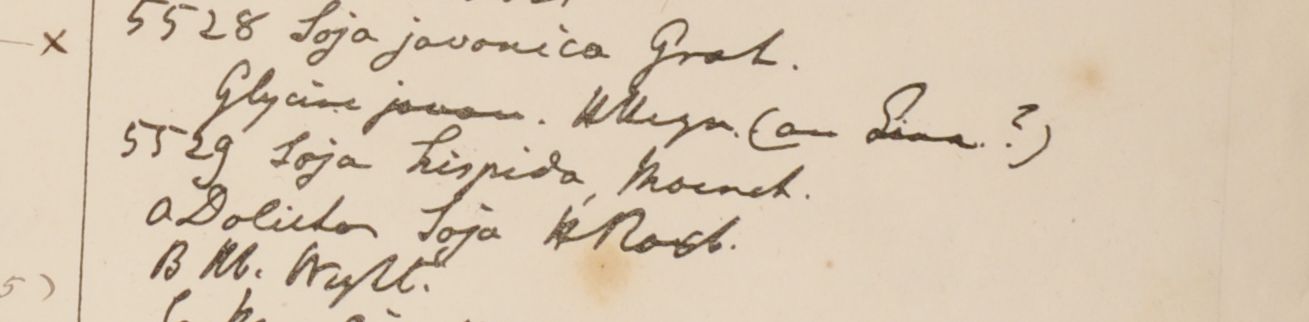 x
5528 Soja javanica Grah.
Glycine javan. H Heyn. (an Linn. ?)
5529 Soja hispida, Moench.
a Dolichos Soja H Roxb.
B Hb. Wight.
5)